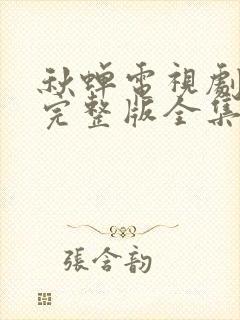 秋蝉電視劇
完整版全集
張含韵